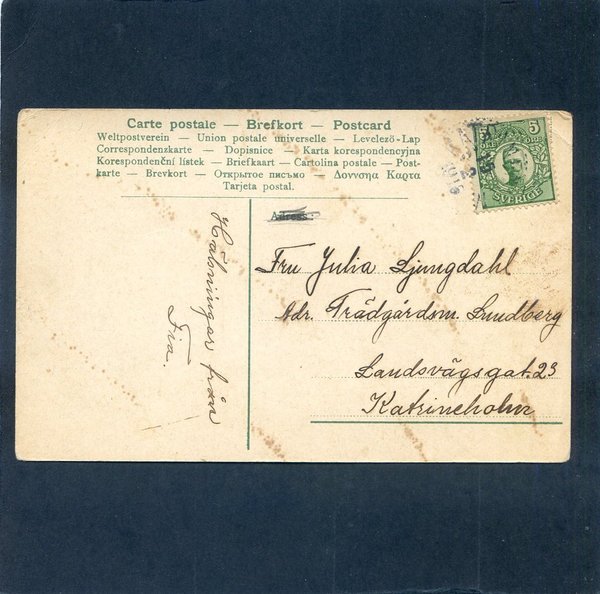 Carte postale — Brefkort — Postcard
Weltpostverein — Union postale universelle — Levelező-Lap
Correspondenzkarte — Dopisnice — Karta korespondencyjna
Korespondenční lístek — Briefkaart — Cartolina postale — Post-
karte — Brevkort — Открытое письмо — Δοννσηα Καρτα
Tarjeta postal.
5
SVERIGE
Hälsningar från
Fia.
Fru Julia Ljungdahl
Adr. Trädgårdsm. Lundberg
Landsvägsgat. 23
Katrineholm